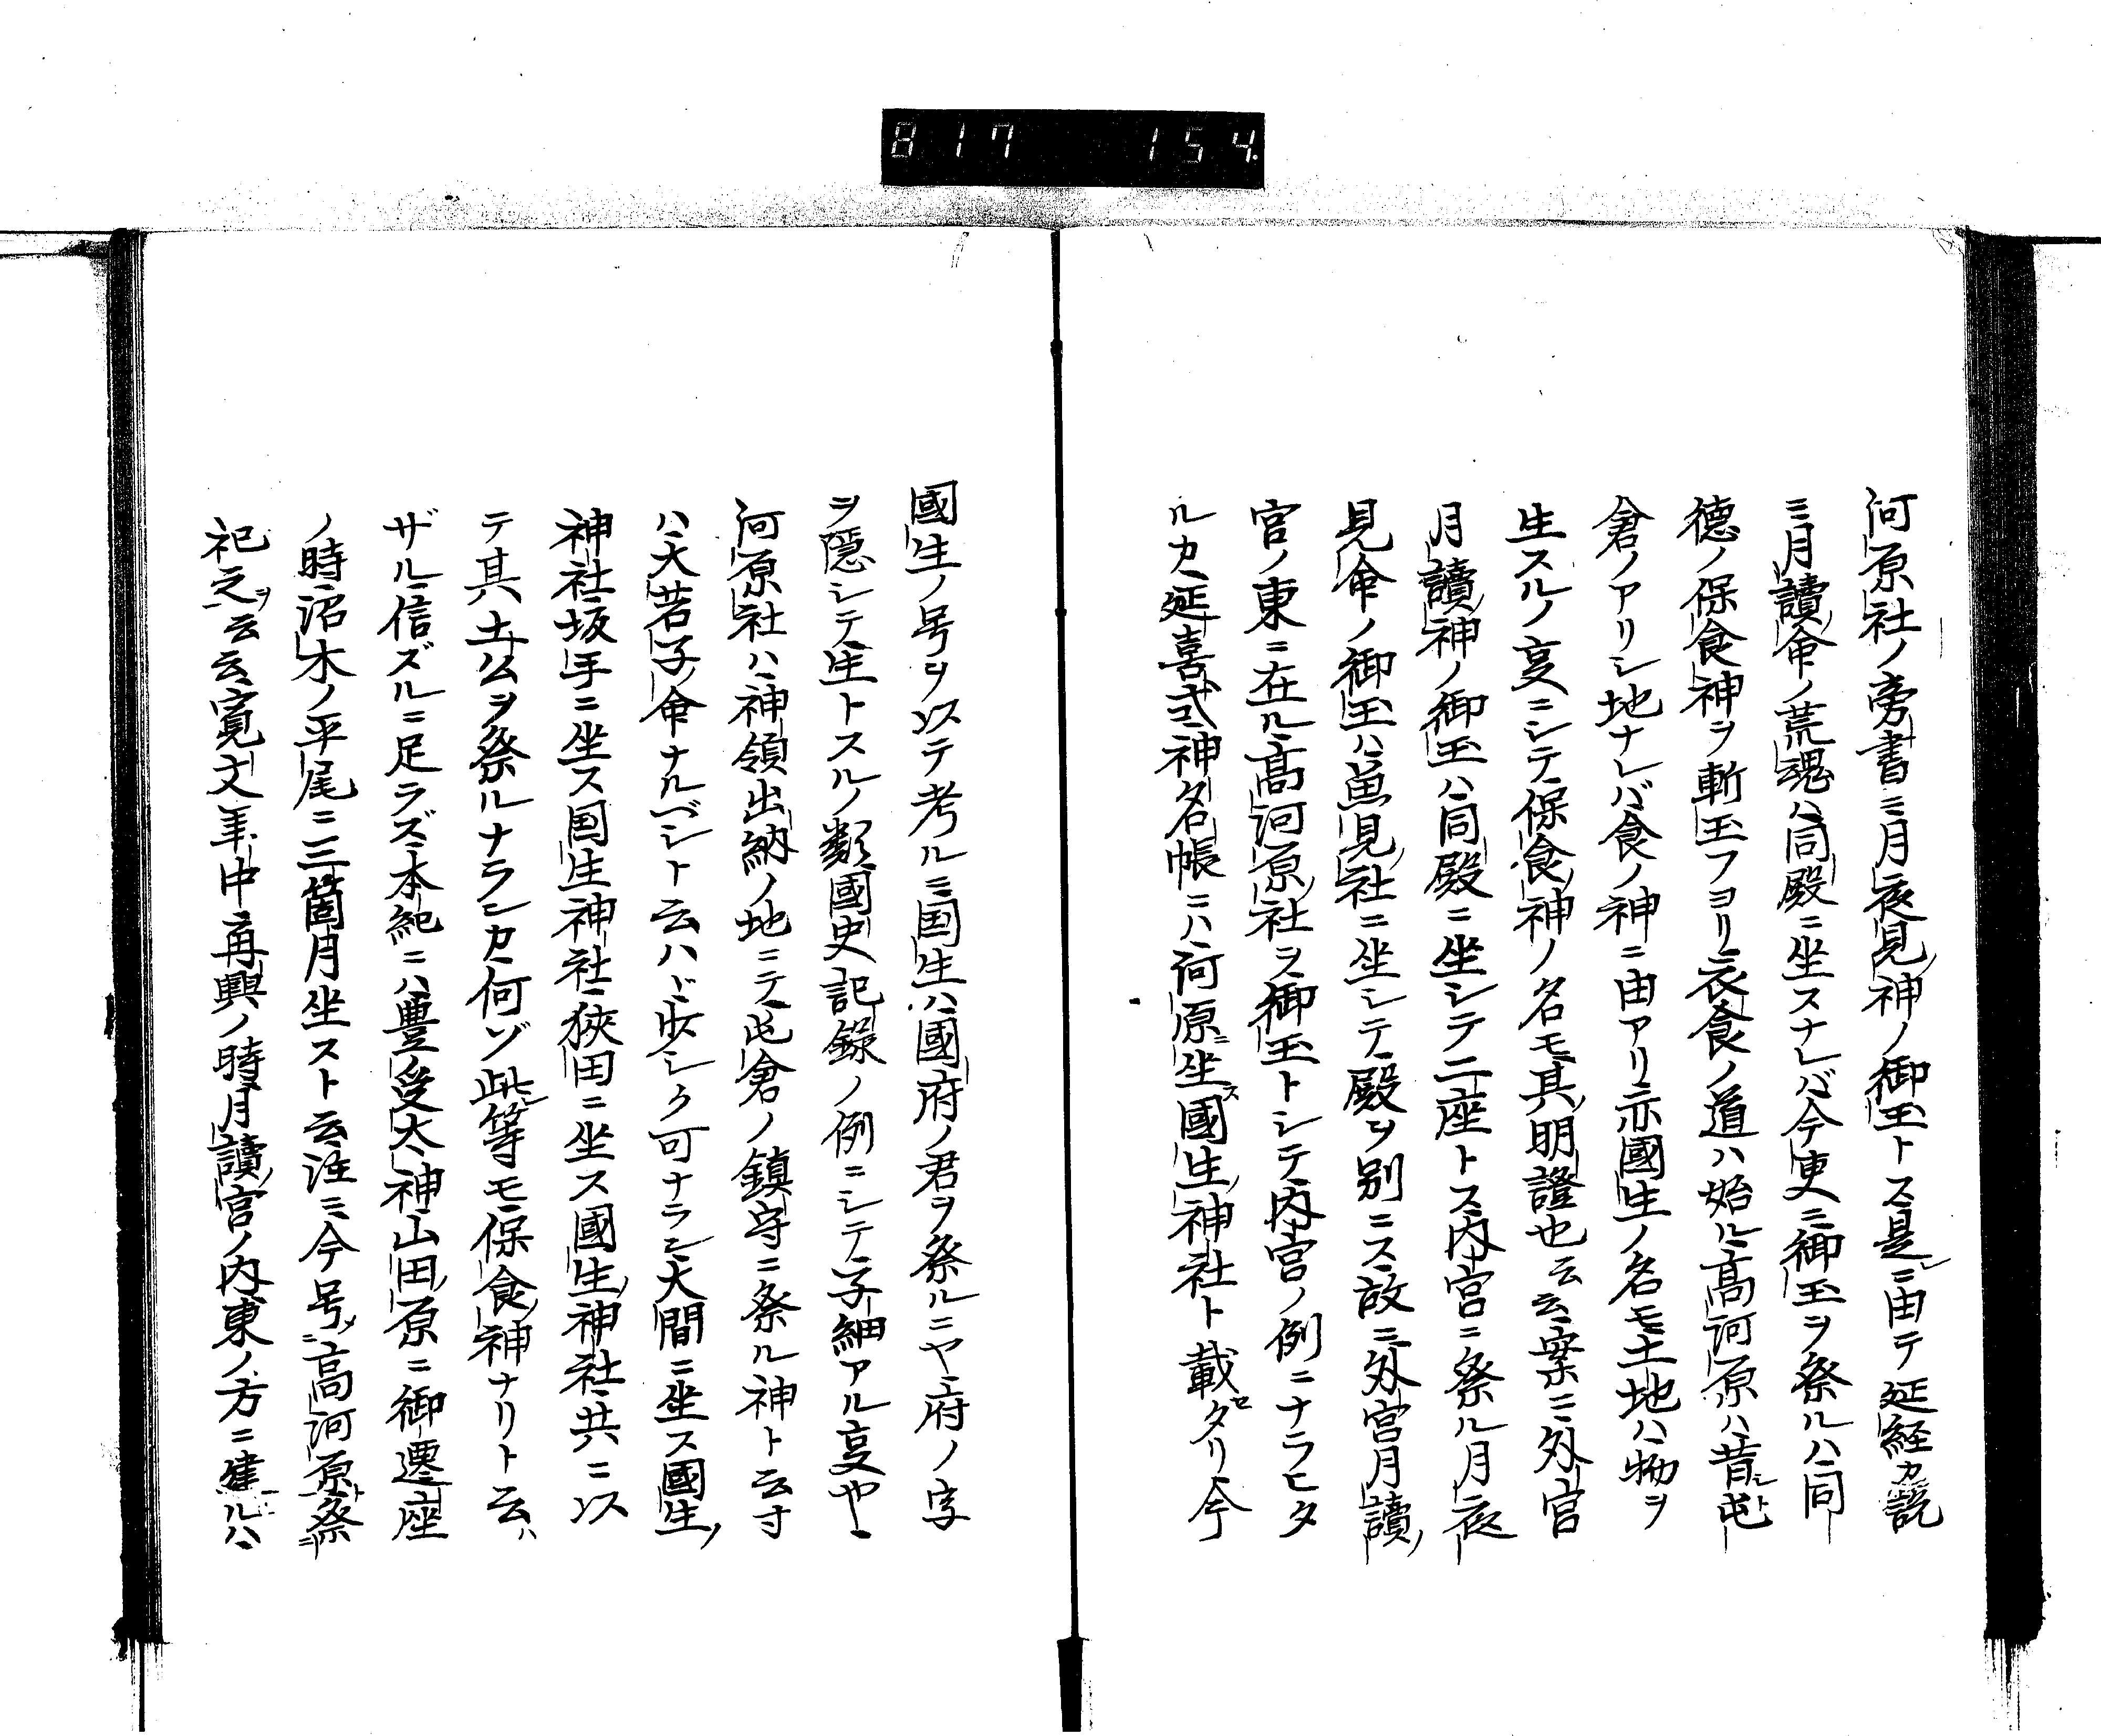 817 154
河原社ノ旁書ニ月夜見神ノ御玉トス是ニ由テ延経カ説
ニ月讀命ノ荒魂ハ同殿ニ坐スナレバ今更ニ御玉ヲ祭ルハ同
徳ノ保食神ヲ斬玉フヨリ衣食ノ道ハ始ル高河原ハ昔シ屯
倉ノアリシ地ナレバ食ノ神ニ由アリ亦國生ノ名モ土地ハ物ヲ
生スルノ亥ニシテ保食神ノ名モ其明證也云云案ニ外宮
月讀神ノ御玉ハ同殿ニ坐シテ二座トス内宮ニ祭ル月夜
見命ノ御玉ハ魚見社ニ坐シテ殿ヲ别ニス故ニ外宮月讀
宮ノ東ニ在ル高河原社ヲ御玉トシテ内宮ノ例ニナラヒタ
ルカ延喜式神名帳ニハ河原ニ坐ス國生神社ト載セタリ今
國生ノ号ヲ以テ考ルニ国生ハ國府ノ君ヲ祭ルニヤ府ノ字
ヲ隱シテ生トスルノ類國史記録ノ例ニシテ子細アル亥ヤ
河原社ハ神領出納ノ地ニテ此倉ノ鎮守ニ祭ル神ト云寸
ハ大若子命ナルベシト云ハヾ少シク可ナラン大間ニ坐ス國生
神社坂手ニ坐ス国生神社狹田ニ坐ス國生神社共ニ以
テ其土公ヲ祭ルナランカ何ゾ此レ等モ保食神ナリト云ハ
ザル信ズルニ足ラズ本紀ニハ豊受太神山田原ニ御遷座
ノ時沼木ノ平尾ニ三箇月坐スト云注ニ今号高河原祭
祀之ヲ云云寛文年中再興ノ時月讀宮ノ内東ノ方ニ建ルハ